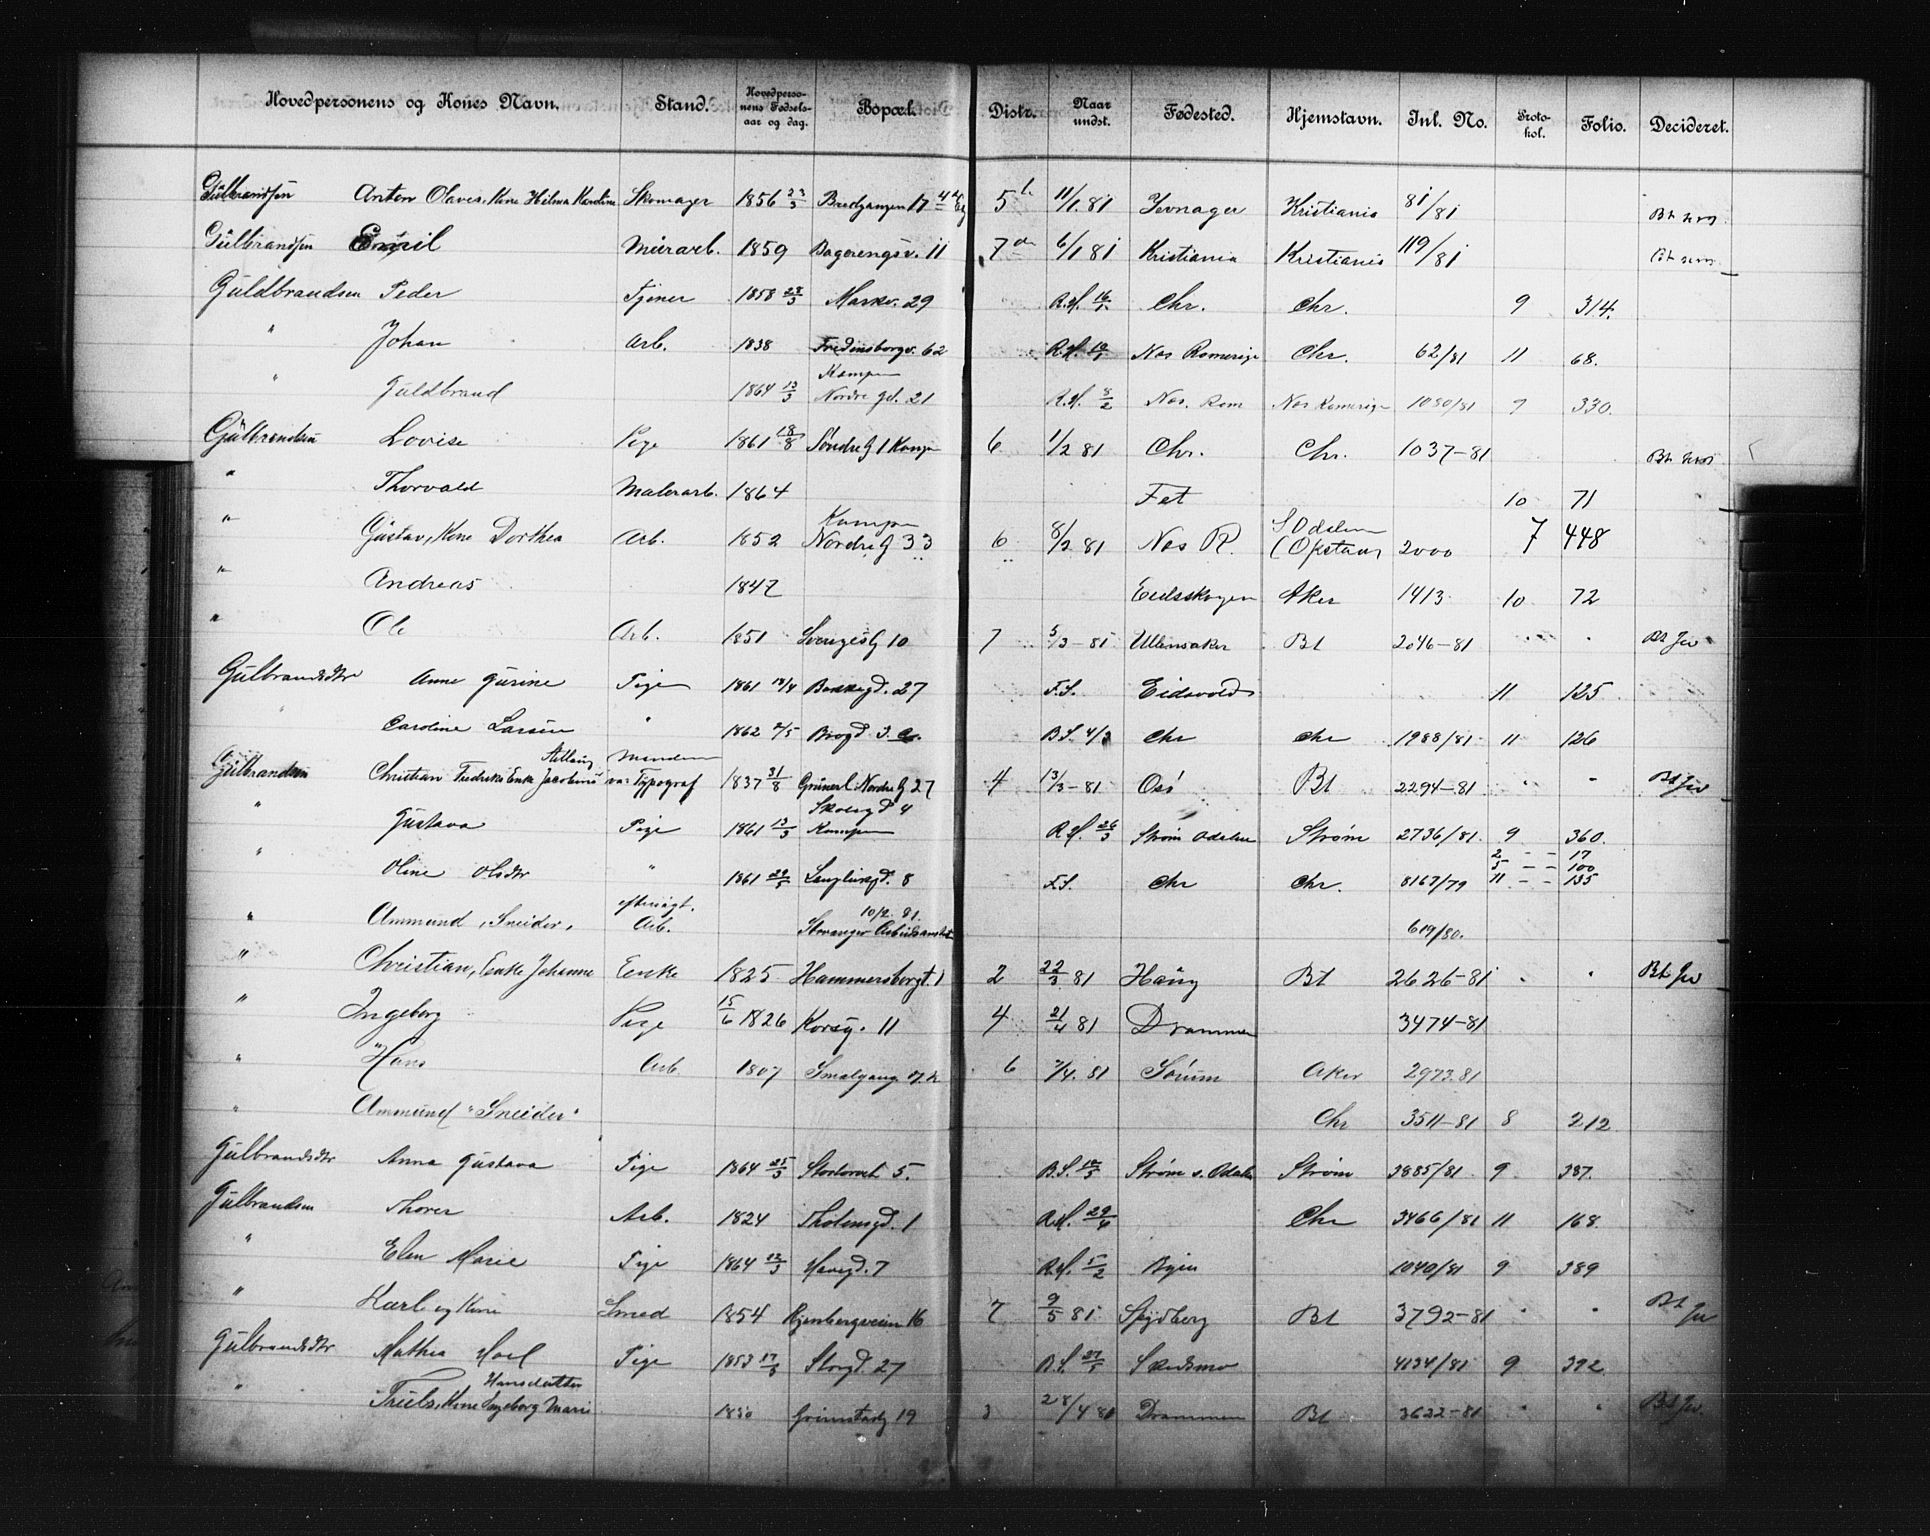 Hovedpersonens og Kones Navn. Stand. Hovedpersonens Fødselsaar og dag. Bopæl. Distr. Naar undst. Fødested. Hjemstavn. Inl. No. Protokol. Folio. Decideret.
Gulbrandsen Anton Olaves, Kone Hilma Karoline Skomager 1856 23/3 Bredgangen 17 5 11/1 81 Jevnager Kristiania 81/81
Gulbrandsen Emil Murarb. 1859 11 7 6/1 81 Kristiania Kristiania 119/81
Guldbrandsen Peder Tjener 1858 23/3 Markv. 29 R.M. Chr. Chr. 9 314.
" Johan Arb. 1838 Fredensborgv. 62 R.M. Nes Romerige Chr. 62/81 11 68.
Kampen
" Guldbrand 1864 13/3 Nordre gd. 21 R.M. 8/2 Nes. Rom Nes Romerige 1030/81 9 330.
Gulbrandsen Lovise Pige 1861 18/8 Søndre G 1 Kampn 6 1/2 81 Chr. Chr. 1037-81
" Thorvald Malerarb. 1864 Fet 10 71
Kampen S Odalen
" Gustav, Kone Dorthea Arb. 1852 Nordre G 33 6 8/2 81 Nes R. (Opstad) 2000 7 448
" Andreas 1847 Eidsskogen Aker 1413 10 72
" Ole Arb. 1851 Sverigesg 10 7 5/3-81 Ullensaker Bt 2046-81 Bt Jv
Gulbrandsdtr Anne Gurine Pige 1861 18/4 27 F.S. Eidsvold 11 125
" Caroline Larsen " 1862 2/5 Brogd. 3. B.S. 4/3 Chr Chr 1988/81 11 126
Manden
Gulbrandsen Christian Fredrik Enke Jacobine var Typograf 1837 31/8 Grünerl. Nordre G 27 4 13/3-81 Osi Bt 2294-81 Bt Jv
Skolegd 4
" Gustava Pige 1861 13/3 Kampen R.M. 26/3 Strøm Odalen Strøm 2736/81 9 360.
2 - - 17
5 - - 100
" Oline Olsdtr " 1861 29/5 8 F.S. Chr Chr. 8167/79 11 - - 135
eftersøgt. 10/2 81.
" Ammund, Sneider, Arb. Stavanger Arbeidsanstalt 619/80.
" Christian, Enke Johanne Enke 1825 Hammersborgt. 1 2 22/3 81 Haug Bt 2626-81 Bt Jv
" Ingeborg Pige 15/6 1826 Korsg. 11 4 21/4 81 Drammen 3474-81
" Hans Arb. 1807 Smalgang 6 7/4. 81 Sørum Aker 2973.81
" Ammund "Sneider" Chr 3511-81 8 212
Gulbrandsdtr Anna Gustava Pige 1864 25/3 Stortorvet 5. B.S. Strøm s. Odalen Strøm 3885/81 9 387.
Gulbrandsen Thorer Arb. 1824 Tholensgd. 1 R.M. 29/6 Chr 3466/81 11 168.
" Elen Marie Pige 1864 12/3 Havegd. 7 R.M. 5/2 Byen 1040/81 9 389
" Karl og Kone Smed 1854 Ryenbergveien 16 7 9/5 81 Spydberg Bt 3792-81 Bt Jv
Gulbrandsdtr Mathea Moel Pige 1853 17/3 Storgd. 27 B.S. 27/5 Skedsmo 4134/81 9 392
Hansdatter
" Truls, Kone Ingeborg Marie 1830 Grimstadg 19 3 28/4 81 Drammen Bt 3622-81 Bt Jv.